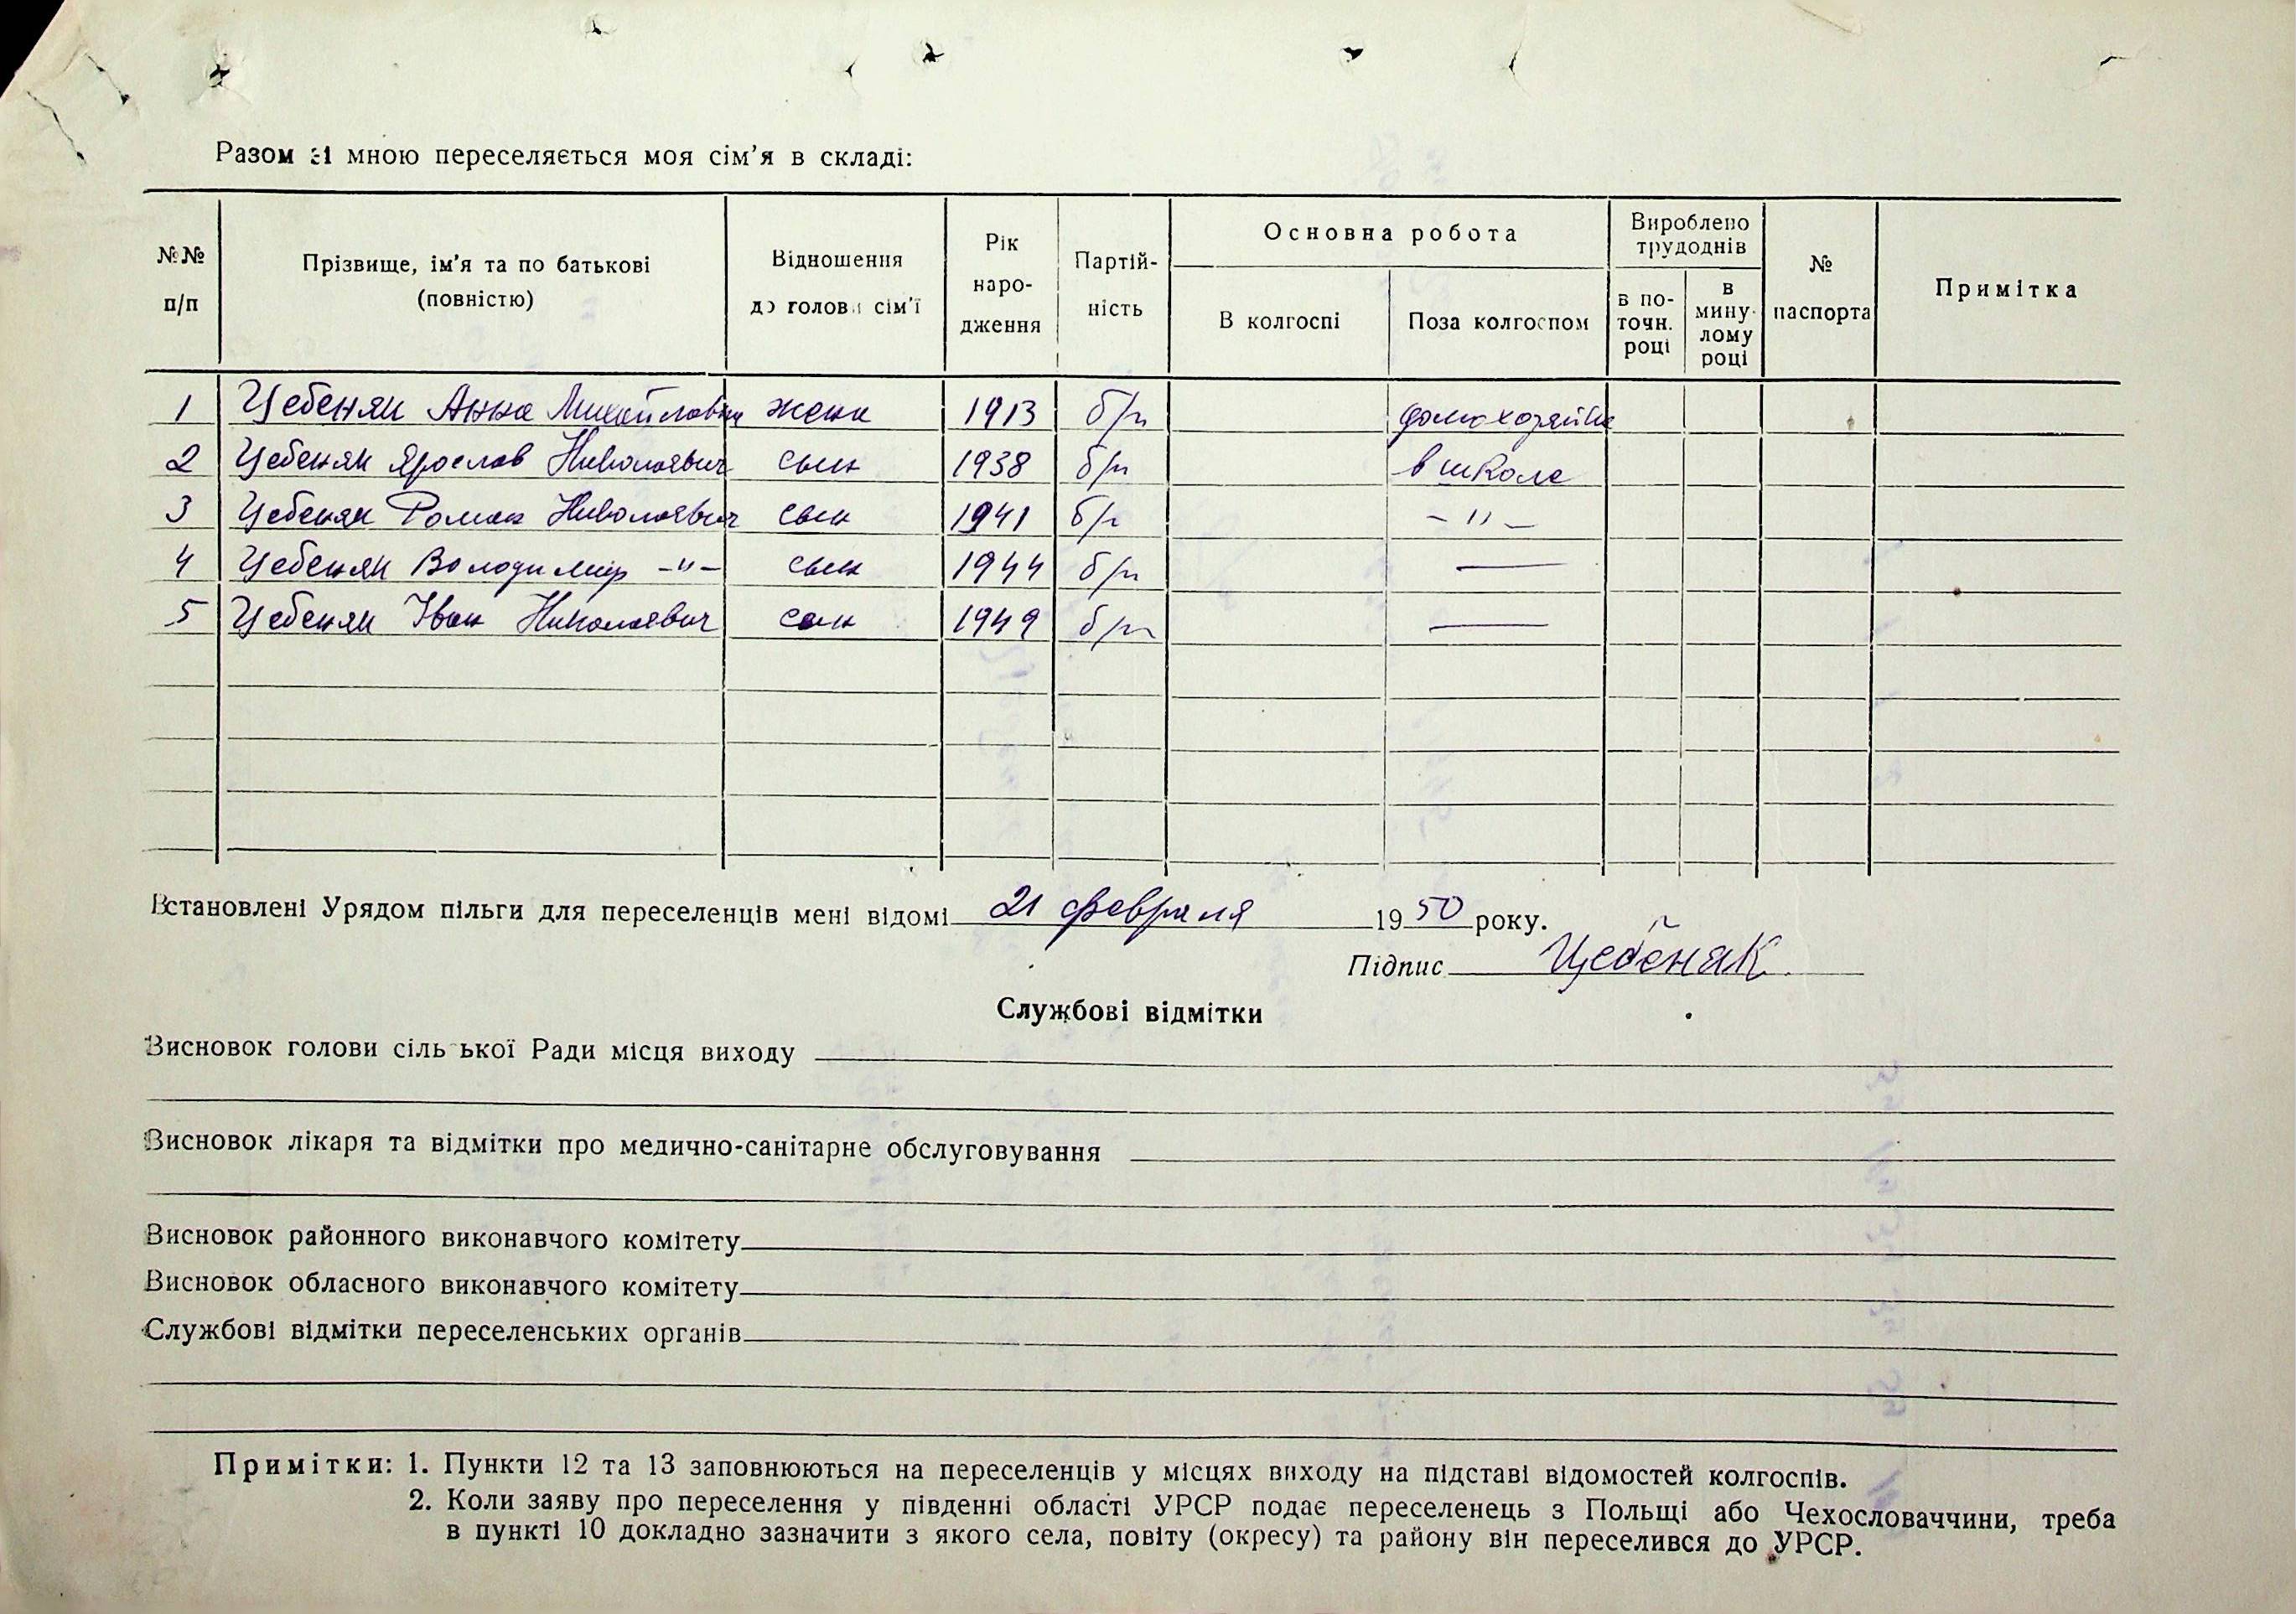 Разом зі мною переселяється моя сім'я в складі:
№№ п/п
Прізвище, ім'я та по батькові (повністю)
Відношення до голови сім'ї
Рік наро- дження
Партій- ність
Основна робота
В колгоспі
Поза колгоспом
Вироблено трудоднів
в по- точн. році
в мину- лому році
№ паспорта
Примітка
1 Цебеняк Анна Михайловна жена 1913 б/п домохозяйка
2 Цебеняк Ярослав Николаевич сын 1938 б/п в школе
3 Цебеняк Роман Николаевич сын 1941 б/п -"-
4 Цебеняк Володимир -"- сын 1944 б/п —
5 Цебеняк Іван Николаевич сын 1949 б/п —
Встановлені Урядом пільги для переселенців мені відомі 21 февраля 1950 року.
Підпис Цебеняк
Службові відмітки
Висновок голови сільської Ради місця виходу
Висновок лікаря та відмітки про медично-санітарне обслуговування
Висновок районного виконавчого комітету
Висновок обласного виконавчого комітету
Службові відмітки переселенських органів
Примітки: 1. Пункти 12 та 13 заповнюються на переселенців у місцях виходу на підставі відомостей колгоспів.
2. Коли заяву про переселення у південні області УРСР подає переселенець з Польщі або Чехословаччини, треба
в пункті 10 докладно зазначити з якого села, повіту (окресу) та району він переселився до УРСР.